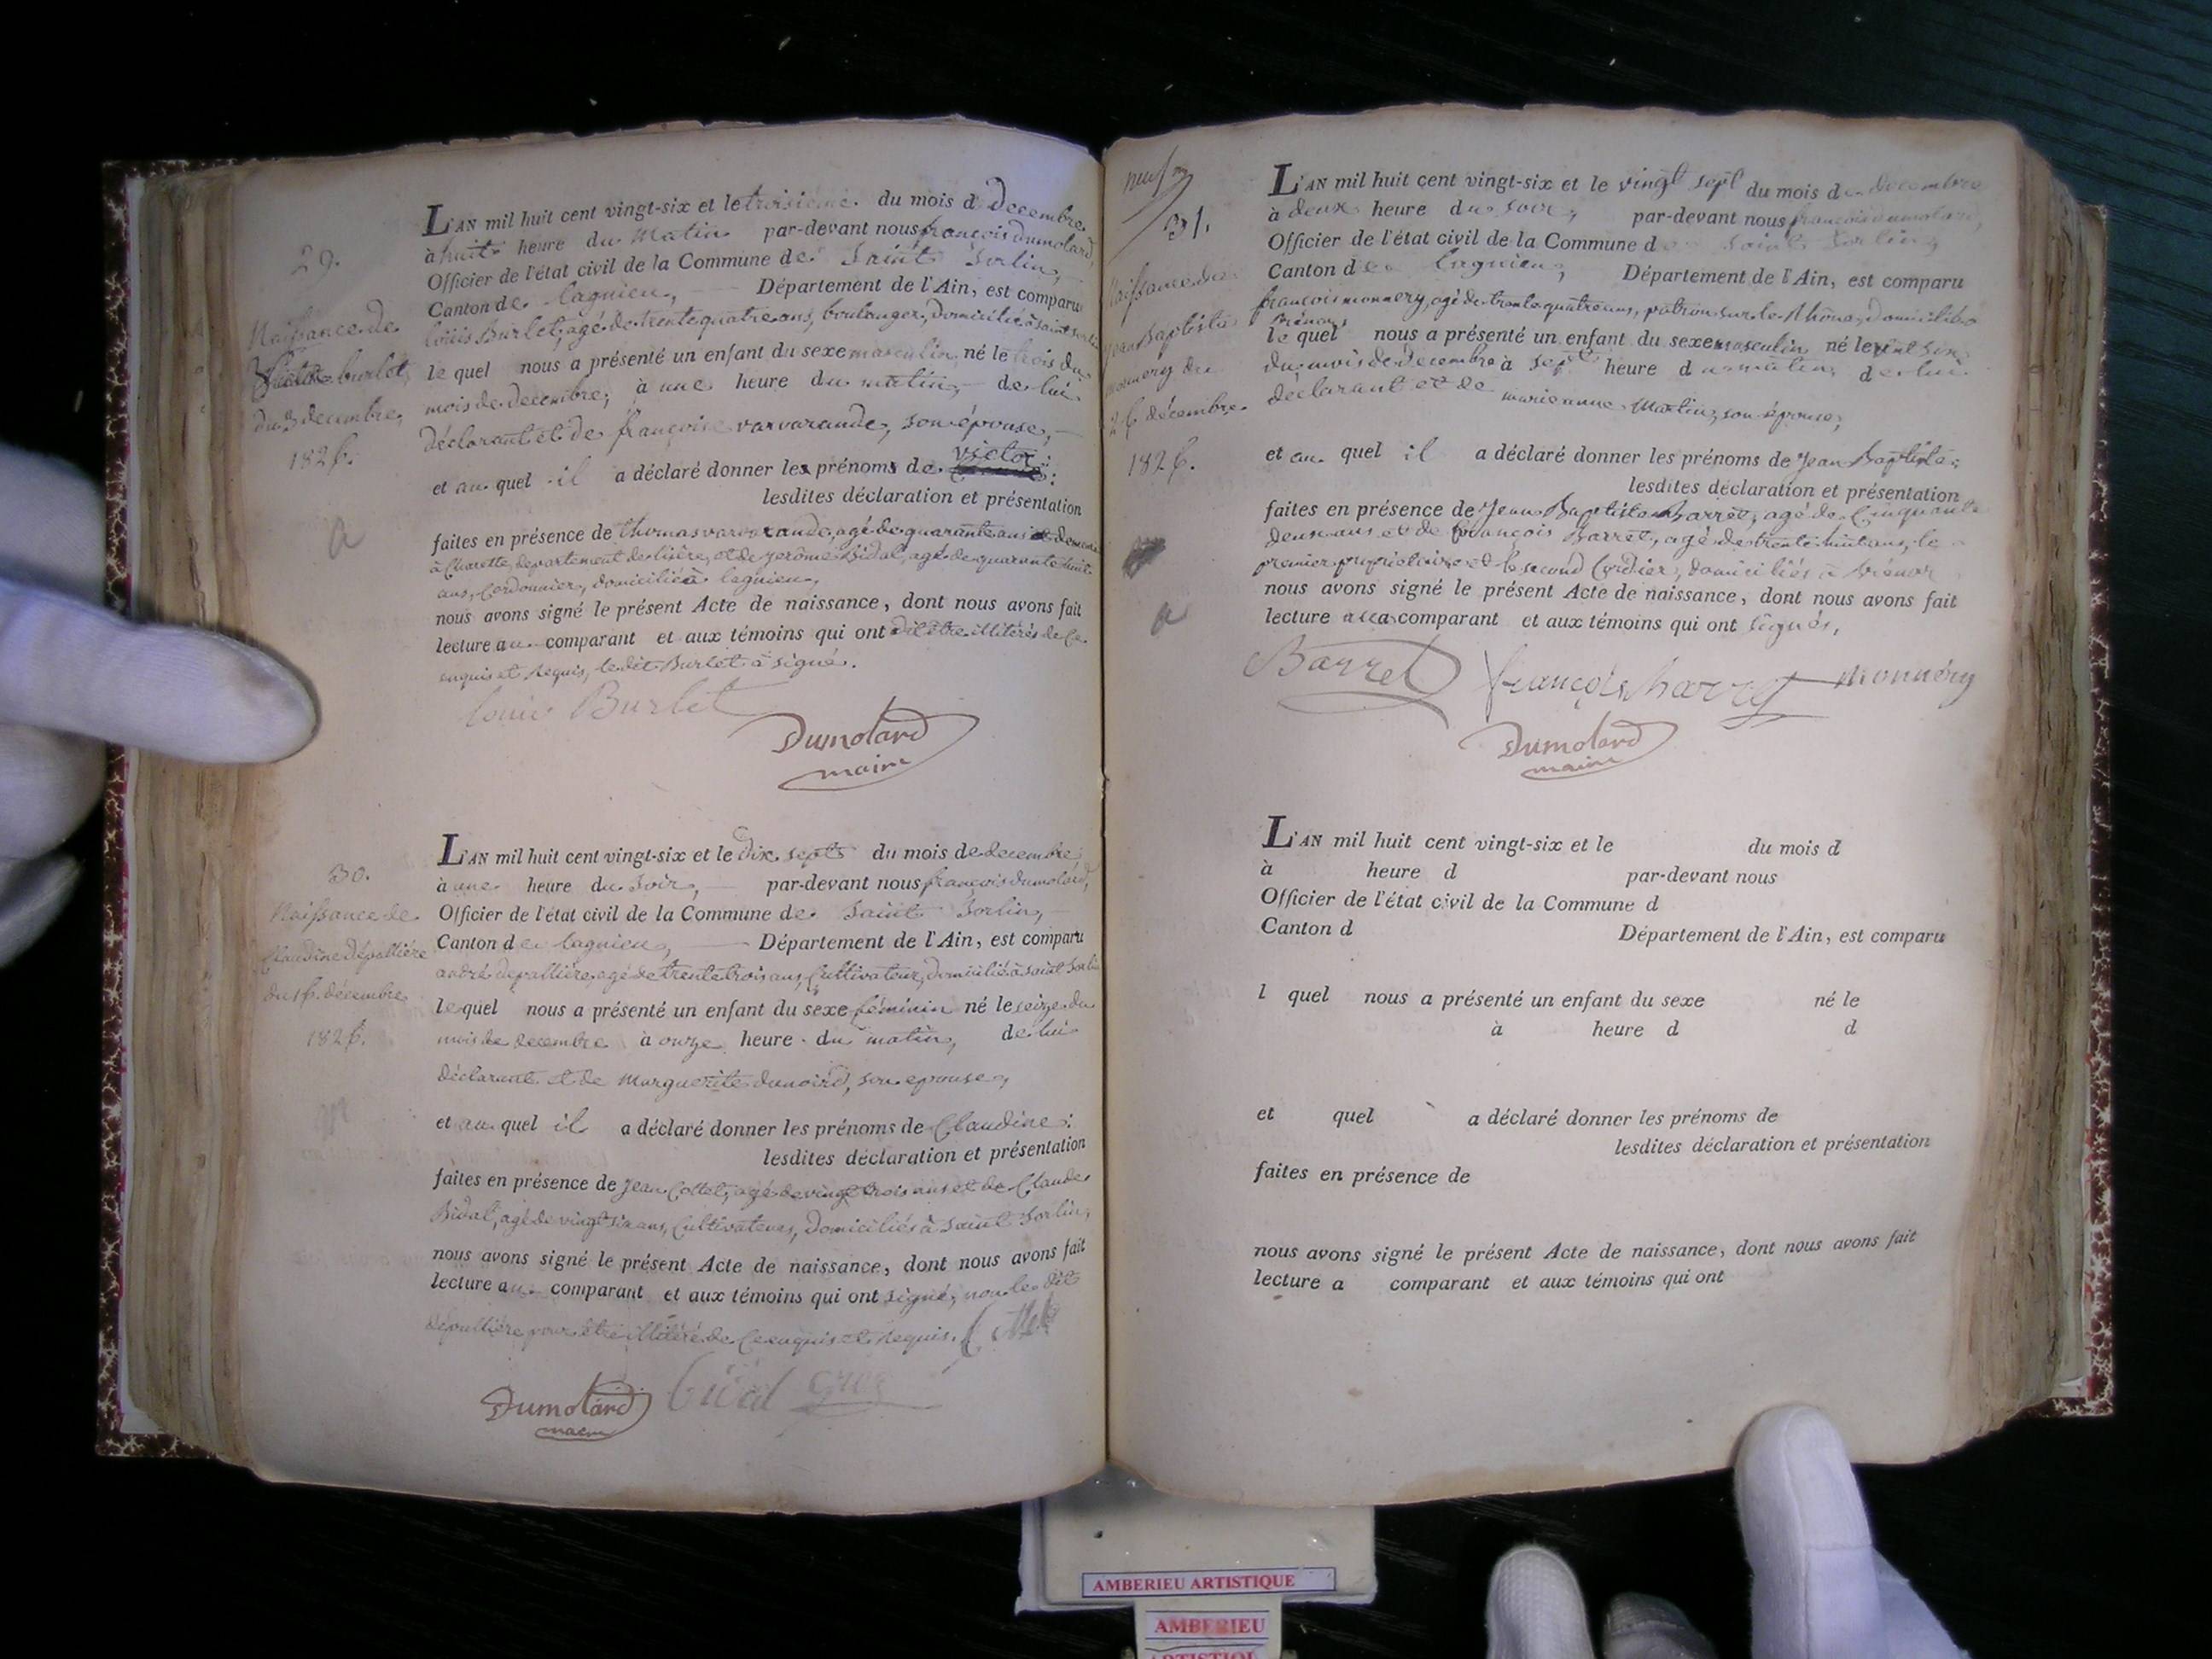 29.
Naissance de
Victor burlet
du 3 decembre,
1826.
a
L'AN mil huit cent vingt-six et le troisième du mois de Decembre
à huit heure du Matin par-devant nous françois dumolard,
Officier de l'état civil de la Commune de Saint Sorlin,
Canton de lagnieu, Département de l'Ain, est comparu
louis Burlet, agé de trente quatre ans, boulanger, domicilié à saint sorlin
le quel nous a présenté un enfant du sexe masculin né le trois du
mois de decembre, à une heure du matin, de lui
déclarant et de françoise varvarande, son épouse,
et au quel il a déclaré donner les prénoms de victor:
lesdites déclaration et présentation
faites en présence de thomas varvarande, agé de quarante ans
à Charette, departement de lisère, et de jerôme Bidal, agé de quarante huit
ans, Cordonnier, domicilié à lagnieu,
nous avons signé le présent Acte de naissance, dont nous avons fait
lecture au comparant et aux témoins qui ont dit être illitérés de ce
enquis et requis, le dit Burlet à signé.
louis Burlet
Dumolard
maire
30.
Naissance de
Claudine dépallière
du 16 décembre
1826.
L'AN mil huit cent vingt-six et le dix sept du mois de decembre
à une heure du soir, par-devant nous françois dumolard,
Officier de l'état civil de la Commune de Saint Sorlin,
Canton de lagnieu, Département de l'Ain, est comparu
andré depallière, agé de trente trois ans, Cultivateur, domicilié à saint Sorlin
lequel nous a présenté un enfant du sexe féminin né le seize du
mois de decembre à onze heure du matin, de lui
déclarant et de Marguerite dunoird, son epouse,
et au quel il a déclaré donner les prénoms de Claudine:
lesdites déclaration et présentation
faites en présence de jean Collet, agé de vingt trois ans et de Claude
Bidal, agé de vingt six ans, Cultivateurs, domiciliés à saint Sorlin,
nous avons signé le présent Acte de naissance, dont nous avons fait
lecture au comparant et aux témoins qui ont signé, non le dit
dépallière pour être illitéré de ce enquis et requis.
Dumolard
maire
31.
Naissance de
Jean Baptiste
monnery du
26 décembre
1826.
a
L'AN mil huit cent vingt-six et le vingt sept du mois de decembre
à deux heure du soir, par-devant nous françois dumolard,
Officier de l'état civil de la Commune de saint Sorlin,
Canton de lagnieu, Département de l'Ain, est comparu
françois monnery, agé de trente quatre ans, patron sur le Rhône, domicilié
le quel nous a présenté un enfant du sexe masculin né le vint six
du mois de decembre à sept heure du matin, de lui
déclarant et de marie anne Martin, son épouse,
et au quel il a déclaré donner les prénoms de Jean Baptiste;
lesdites déclaration et présentation
faites en présence de Jean Baptiste Barret, agé de Cinquante
deux ans et de françois Barret, agé de trente huit ans, le
premier propriétaire et le second Cordier, domiciliés à
nous avons signé le présent Acte de naissance, dont nous avons fait
lecture au comparant et aux témoins qui ont signés,
Barret françois barret monnéry
Dumolard
maire
L'AN mil huit cent vingt-six et le du mois d
à heure d par-devant nous
Officier de l'état civil de la Commune d
Canton d Département de l'Ain, est comparu
l quel nous a présenté un enfant du sexe né le
à heure d d
et quel a déclaré donner les prénoms de
lesdites déclaration et présentation
faites en présence de
nous avons signé le présent Acte de naissance, dont nous avons fait
lecture a comparant et aux témoins qui ont
AMBERIEU ARTISTIQUE
AMBERIEU
ARTISTIQUE